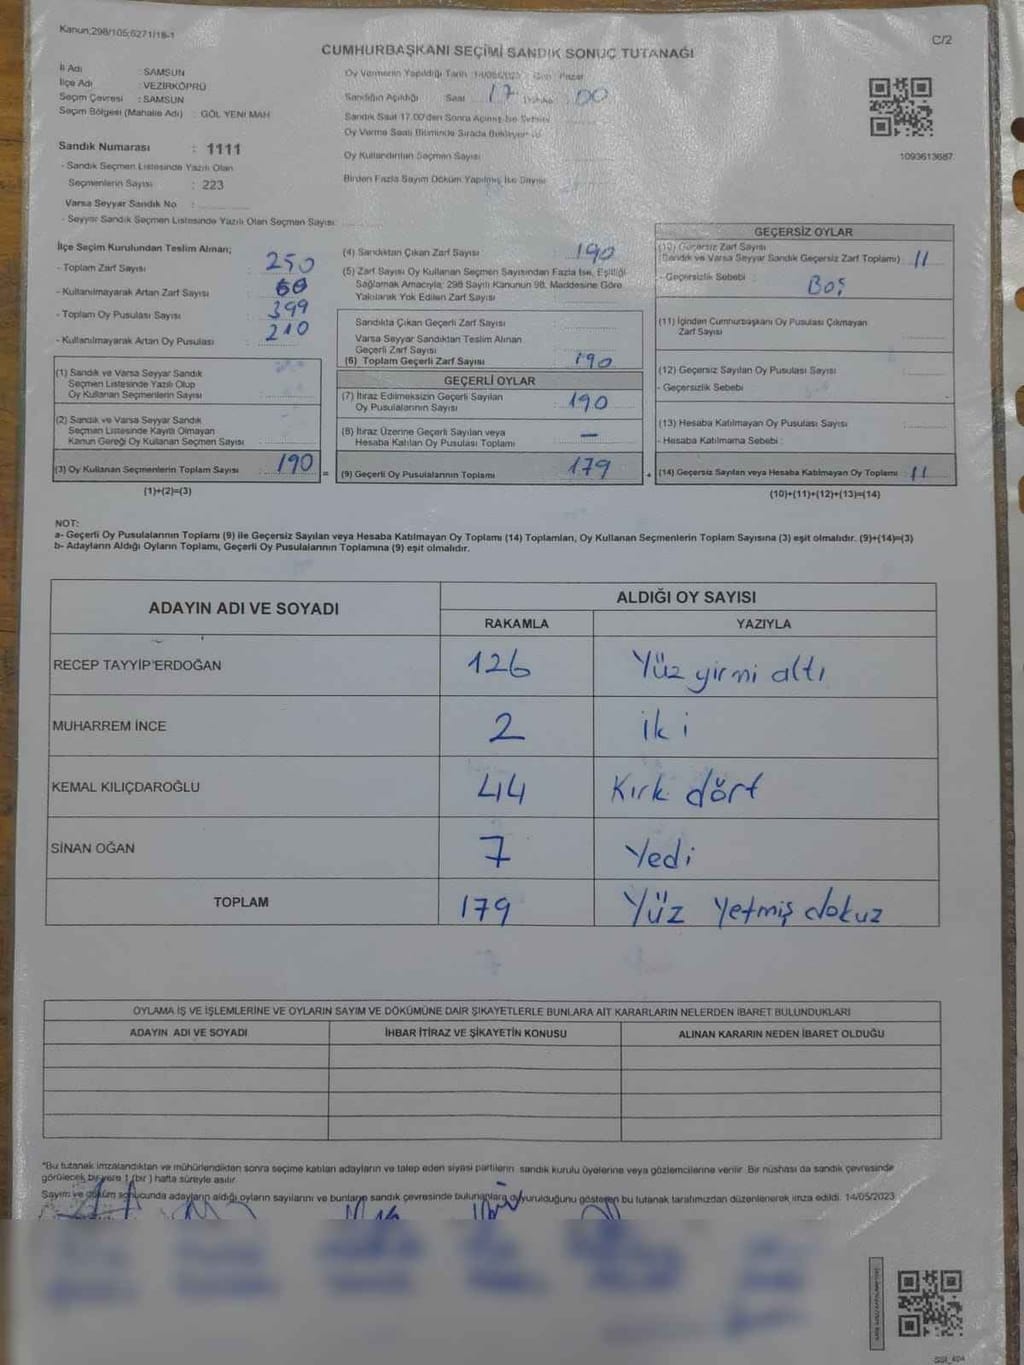 Kanun;298/105;6271/18-1
C/2
CUMHURBAŞKANI SEÇİMİ SANDIK SONUÇ TUTANAĞI
İl Adı : SAMSUN
İlçe Adı : VEZİRKÖPRÜ
Seçim Çevresi : SAMSUN
Seçim Bölgesi (Mahalle Adı) : GÖL YENİ MAH
Sandık Numarası : 1111
- Sandık Seçmen Listesinde Yazılı Olan
Seçmenlerin Sayısı : 223
Varsa Seyyar Sandık No :
- Seyyar Sandık Seçmen Listesinde Yazılı Olan Seçmen Sayısı:
Oy Vermenin Yapıldığı Tarih 14/05/2023 Gün Pazar
Sandığın Açıldığı Saat 17 Dakika 00
Sandık Saat 17.00'den Sonra Açılmış İse Sebebi
Oy Verme Saati Bitiminde Sırada Bekleyen
Oy Kullandırılan Seçmen Sayısı
Birden Fazla Sayım Döküm Yapılmış İse Sayısı
1093613687
İlçe Seçim Kurulundan Teslim Alınan;
- Toplam Zarf Sayısı 250
- Kullanılmayarak Artan Zarf Sayısı 60
- Toplam Oy Pusulası Sayısı 399
- Kullanılmayarak Artan Oy Pusulası 210
(1) Sandık ve Varsa Seyyar Sandık
Seçmen Listesinde Yazılı Olup
Oy Kullanan Seçmenlerin Sayısı
(2) Sandık ve Varsa Seyyar Sandık
Seçmen Listesinde Kayıtlı Olmayan
Kanun Gereği Oy Kullanan Seçmen Sayısı
(3) Oy Kullanan Seçmenlerin Toplam Sayısı 190 =
(1)+(2)=(3)
(4) Sandıktan Çıkan Zarf Sayısı 190
(5) Zarf Sayısı Oy Kullanan Seçmen Sayısından Fazla İse, Eşitliği
Sağlamak Amacıyla; 298 Sayılı Kanunun 98. Maddesine Göre
Yakılarak Yok Edilen Zarf Sayısı
Sandıkta Çıkan Geçerli Zarf Sayısı
Varsa Seyyar Sandıktan Teslim Alınan
Geçerli Zarf Sayısı
(6) Toplam Geçerli Zarf Sayısı 190
GEÇERLİ OYLAR
(7) İtiraz Edilmeksizin Geçerli Sayılan
Oy Pusulalarının Sayısı 190
(8) İtiraz Üzerine Geçerli Sayılan veya
Hesaba Katılan Oy Pusulası Toplamı —
(9) Geçerli Oy Pusulalarının Toplamı 179 +
GEÇERSİZ OYLAR
(10) Geçersiz Zarf Sayısı
(Sandık ve Varsa Seyyar Sandık Geçersiz Zarf Toplamı) 11
- Geçersizlik Sebebi : Boş
(11) İçinden Cumhurbaşkanı Oy Pusulası Çıkmayan
Zarf Sayısı
(12) Geçersiz Sayılan Oy Pusulası Sayısı
- Geçersizlik Sebebi
(13) Hesaba Katılmayan Oy Pusulası Sayısı
- Hesaba Katılmama Sebebi :
(14) Geçersiz Sayılan veya Hesaba Katılmayan Oy Toplamı : 11
(10)+(11)+(12)+(13)=(14)
NOT:
a- Geçerli Oy Pusulalarının Toplamı (9) ile Geçersiz Sayılan veya Hesaba Katılmayan Oy Toplamı (14) Toplamları, Oy Kullanan Seçmenlerin Toplam Sayısına (3) eşit olmalıdır. (9)+(14)=(3)
b- Adayların Aldığı Oyların Toplamı, Geçerli Oy Pusulalarının Toplamına (9) eşit olmalıdır.
ADAYIN ADI VE SOYADI
ALDIĞI OY SAYISI
RAKAMLA YAZIYLA
RECEP TAYYİP ERDOĞAN 126 Yüz yirmi altı
MUHARREM İNCE 2 iki
KEMAL KILIÇDAROĞLU 44 Kırk dört
SİNAN OĞAN 7 Yedi
TOPLAM 179 Yüz Yetmiş dokuz
OYLAMA İŞ VE İŞLEMLERİNE VE OYLARIN SAYIM VE DÖKÜMÜNE DAİR ŞİKAYETLERLE BUNLARA AİT KARARLARIN NELERDEN İBARET BULUNDUKLARI
ADAYIN ADI VE SOYADI İHBAR İTİRAZ VE ŞİKAYETİN KONUSU ALINAN KARARIN NEDEN İBARET OLDUĞU
"Bu tutanak imzalandıktan ve mühürlendikten sonra seçime katılan adayların ve talep eden siyasi partilerin sandık kurulu üyelerine veya gözlemcilerine verilir. Bir nüshası da sandık çevresinde
görülecek bir yere 1 (bir) hafta süreyle asılır.
Sayım ve döküm sonucunda adayların aldığı oyların sayılarını ve bunların sandık çevresinde bulunanlara duyurulduğunu gösteren bu tutanak tarafımızdan düzenlenerek imza edildi. 14/05/2023